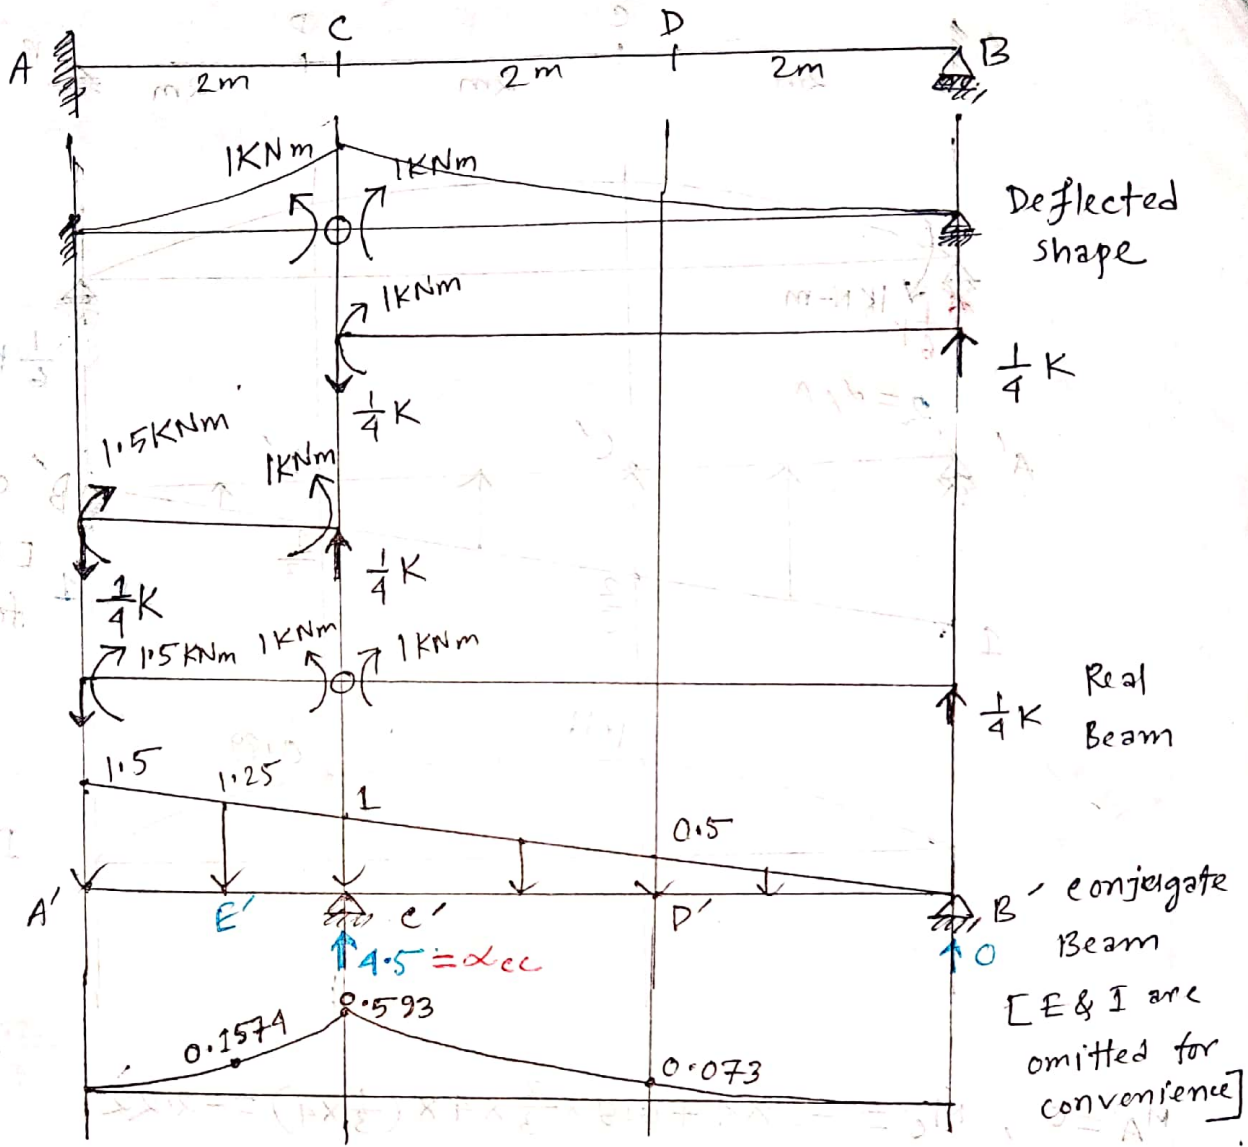 C D
A B
2m 2m 2m
1KNm 1KNm
Deflected
shape
1KNm
1/4 K
1/4 K
1.5KNm
1KNm
1/4 K
1/4 K
1.5KNm 1KNm 1KNm
1/4 K
Real
Beam
1.5
1.25
1
0.5
A' E' C' D' B'
conjugate
Beam
4.5 = αcc
0
[E & I are
omitted for
convenience]
0.1574
0.593
0.073